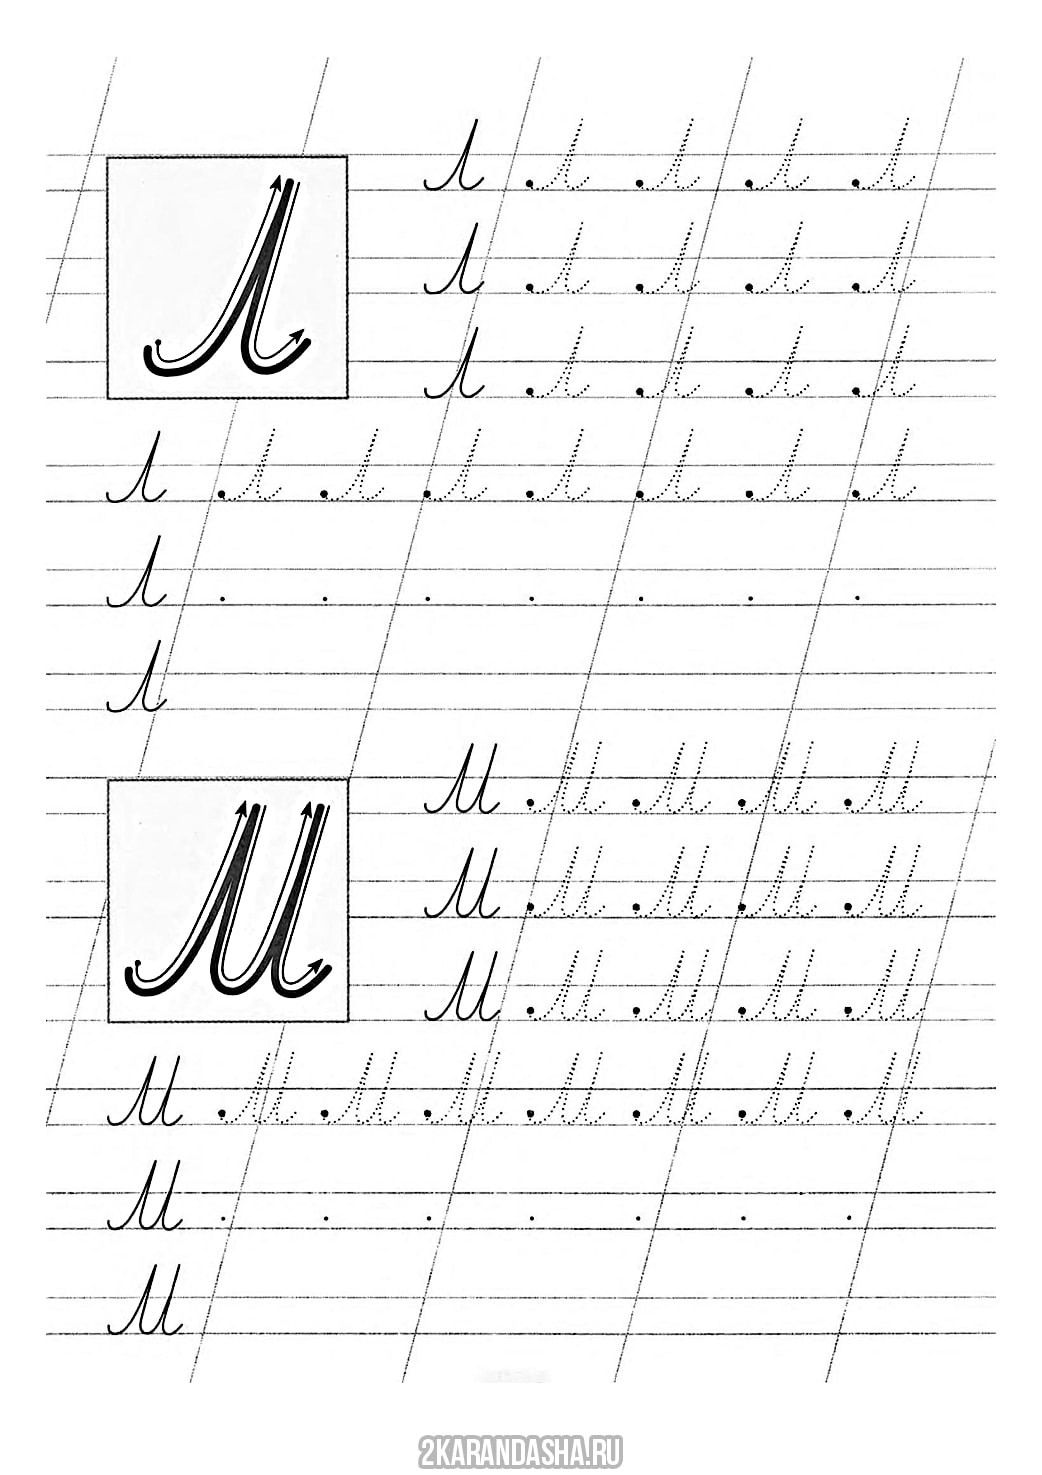 Л Л Л Л Л Л
Л Л Л Л Л
Л Л Л Л Л
Л Л Л Л Л Л Л Л
Л
Л
М М М М М М
М М М М М
М М М М М
М М М М М М М М
М
М
2KARANDASHA.RU